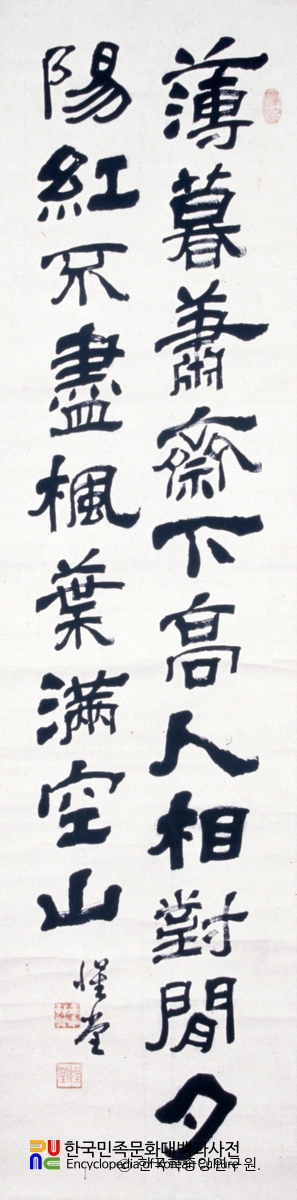 薄暮蕭齋下高人相對閒夕
陽紅不盡楓葉滿空山
惺堂
한국민족문화대백과사전
Encyclopedia of Korean Culture
© 한국학중앙연구원.